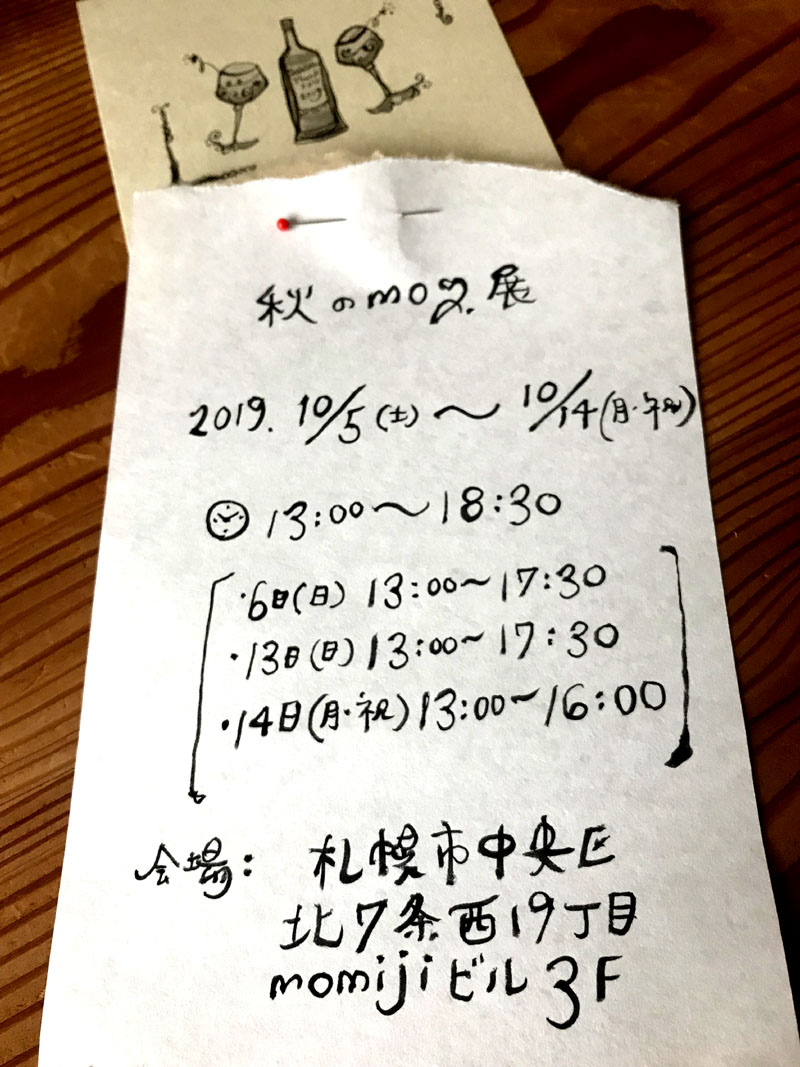 秋のmog.展
2019. 10/5(土)〜10/14(月・祝)
13:00〜18:30
・6日(日) 13:00〜17:30
・13日(日) 13:00〜17:30
・14日(月・祝) 13:00〜16:00
会場: 札幌市中央区
北7条西19丁目
momijiビル 3F